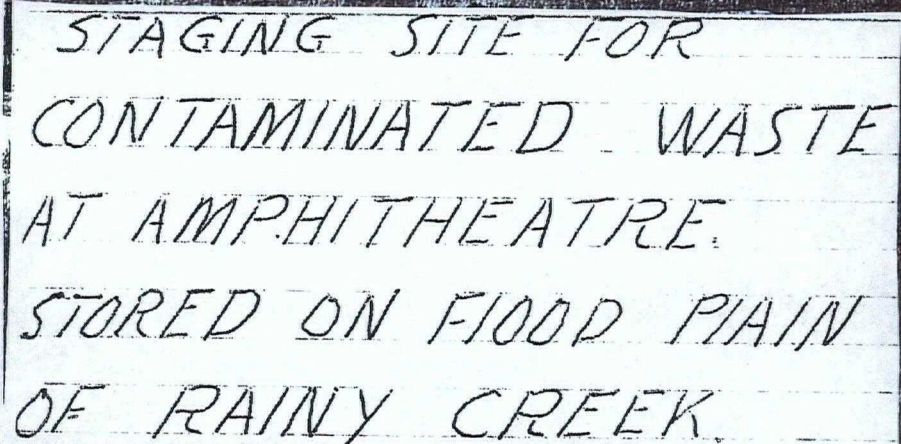 STAGING SITE FOR
CONTAMINATED WASTE
AT AMPHITHEATRE.
STORED ON FlOOD PlAIN
OF RAINY CREEK.